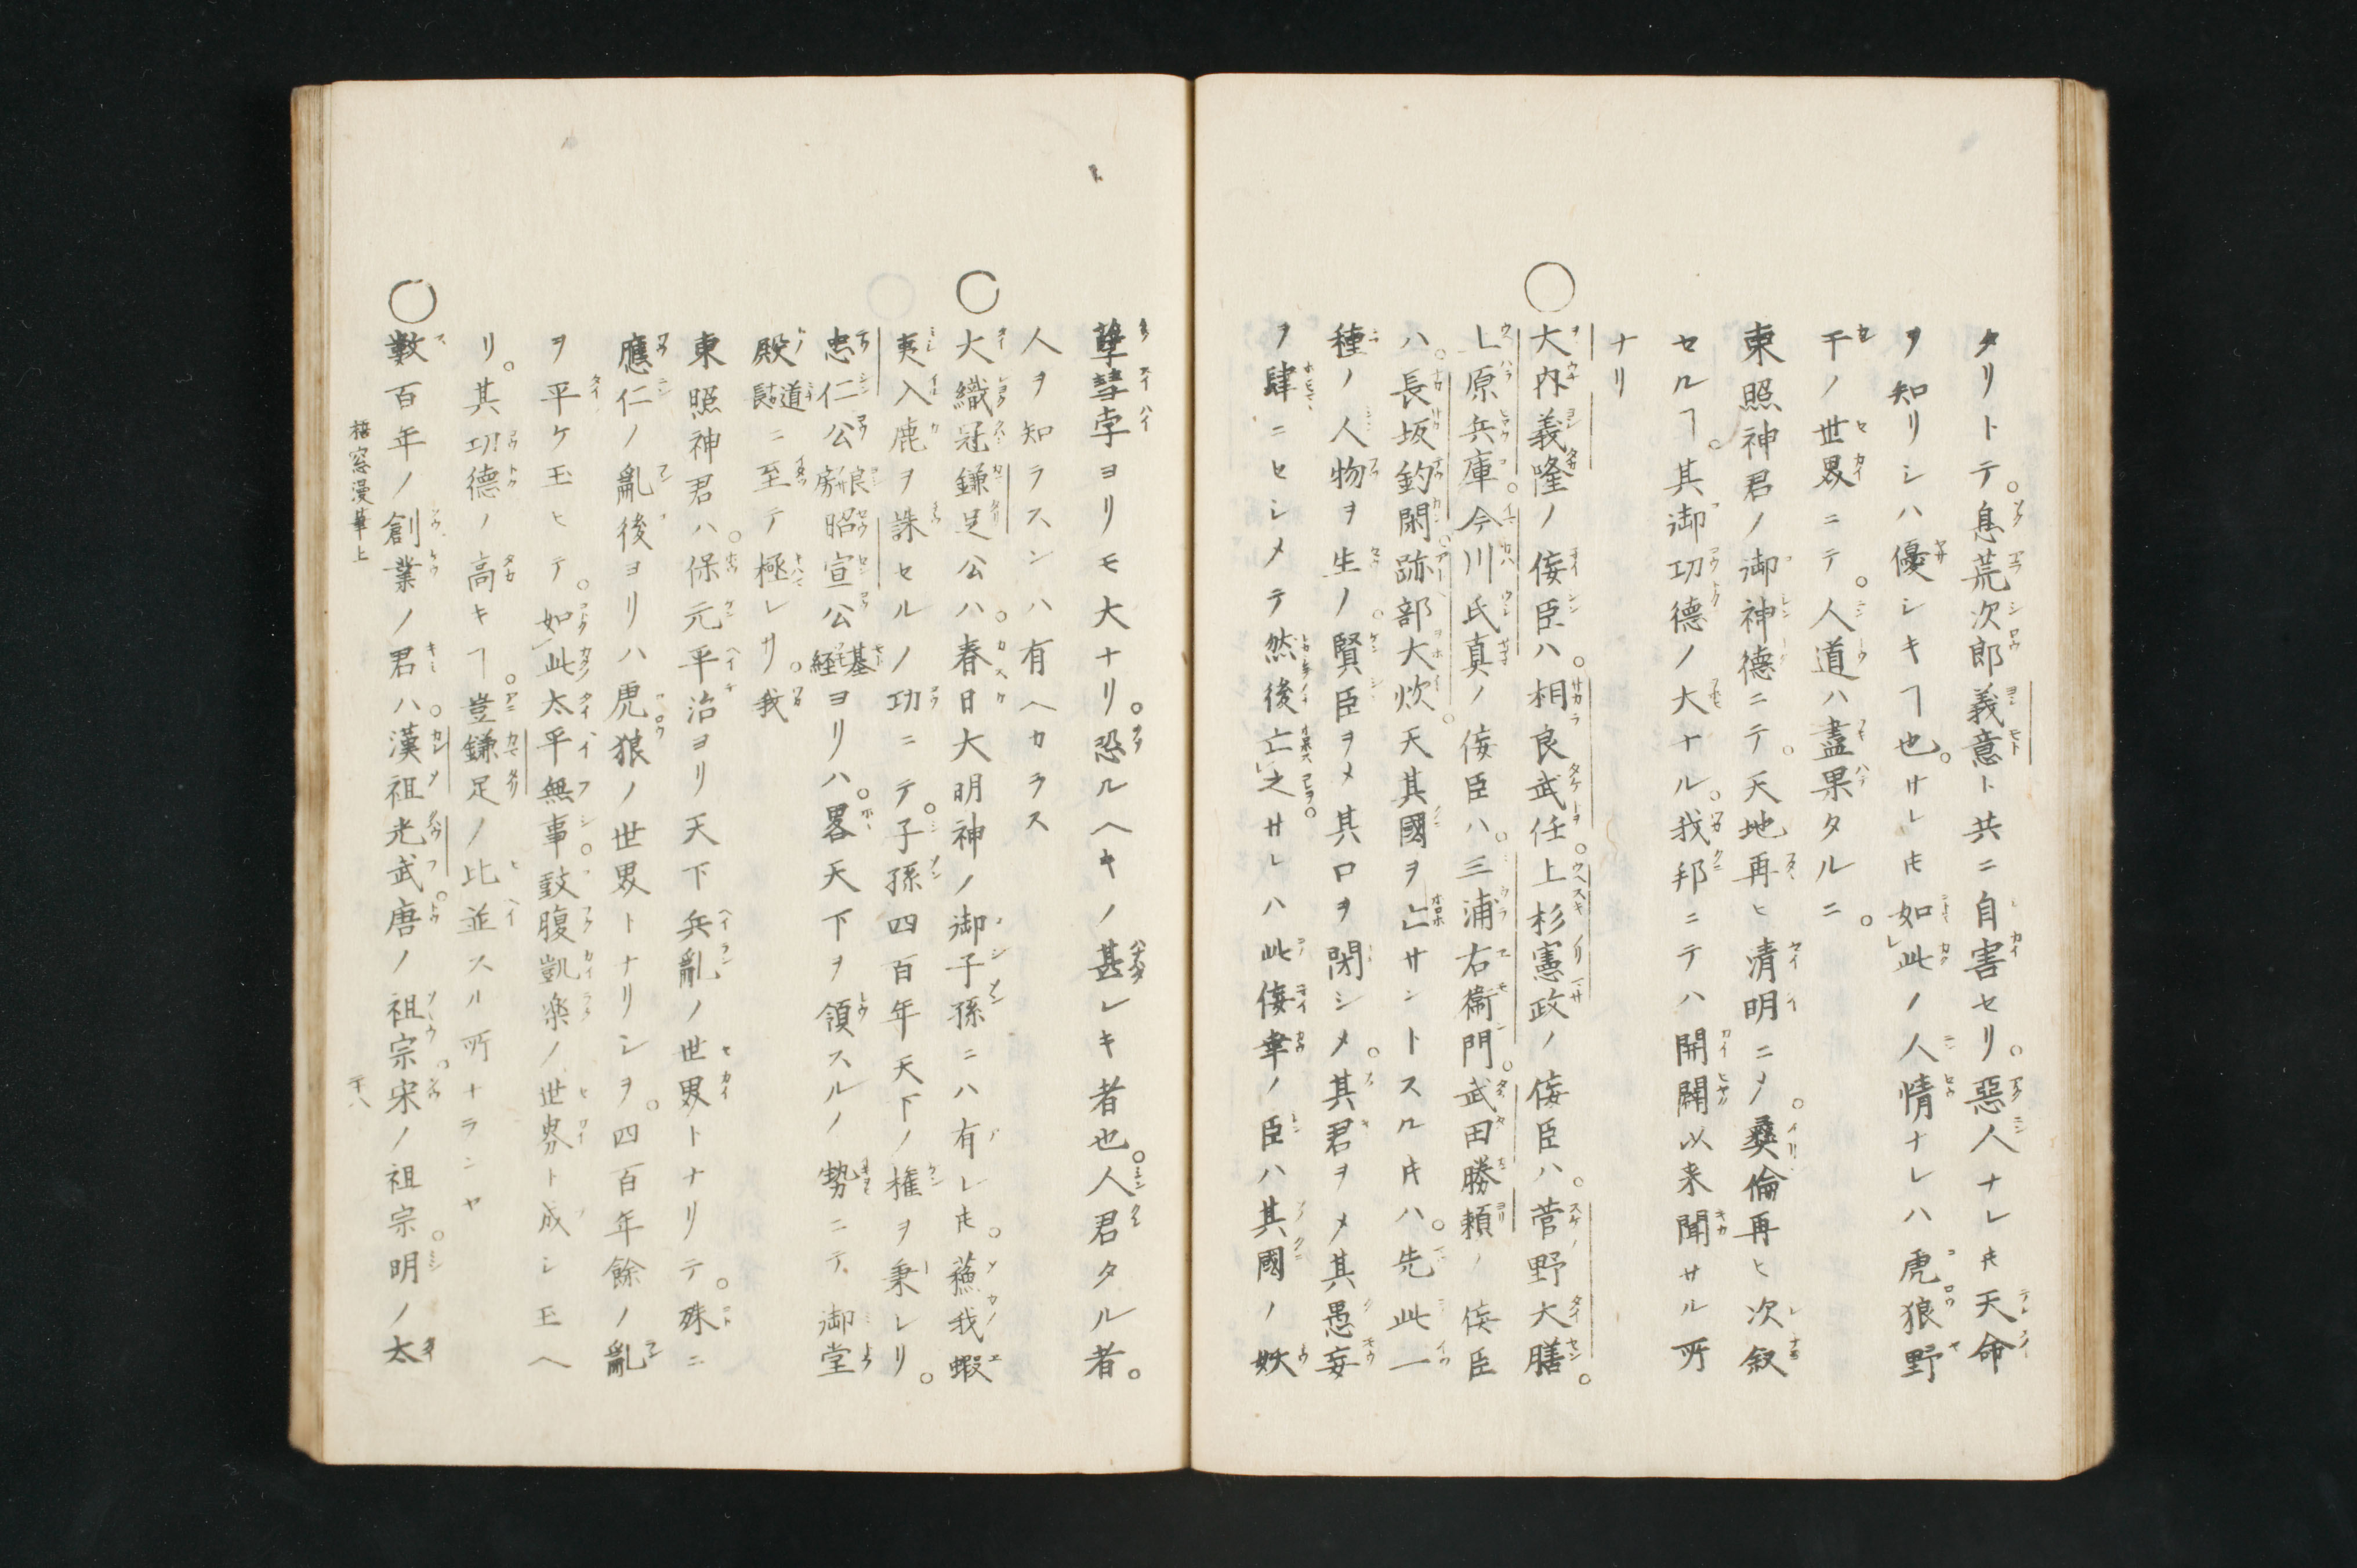 タリトテ。息荒次郎義意ト共ニ自害セリ。惡人ナレ𪜈天命
ヲ知リシハ優シキヿ也。サレ𪜈如此ノ人情ナレハ虎狼野
干ノ世界ニテ。人道ハ盡果タルニ。
東照神君ノ御神德ニテ。天地再ヒ清明ニメ。彜倫再ヒ次叙
セルヿ。其御功德ノ大ナル。我邦ニテハ開闢以来聞サル所
ナリ
○大内義隆ノ侫臣ハ。相良武任。上杉憲政ノ侫臣ハ。菅野大膳。
上原兵庫。今川氏真ノ侫臣ハ。三浦右衛門。武田勝頼ノ侫臣
ハ。長坂釣閑。跡部大炊。天其國ヲ亡サントスル𪜈ハ。先此一
種ノ人物ヲ生ノ。賢臣ヲメ其口ヲ閉シメ。其君ヲメ其愚妄
ヲ肆ニセシメテ然後亡之。サレハ此侫幸ノ臣ハ其國ノ妖
孽彗孛ヨリモ大ナリ。恐ルヘキノ甚シキ者也。人君タル者。
人ヲ知ラスンハ有ヘカラス
○大織冠鎌足公ハ。春日大明神ノ御子孫ニハ有レ𪜈。蘓我蝦
夷入鹿ヲ誅セルノ功ニテ。子孫四百年天下ノ権ヲ秉レリ。
忠仁公良房昭宣公基経ヨリハ。畧天下ヲ領スルノ勢ニテ御堂
殿道長ニ至テ極レリ。我
東照神君ハ。保元平治ヨリ天下兵亂ノ世界トナリテ。殊ニ
應仁ノ亂後ヨリハ虎狼ノ世界トナリシヲ。四百年餘ノ亂
ヲ平ケ玉ヒテ。如此太平無事。鼓腹凱楽ノ世界ト成シ玉ヘ
リ。其功德ノ高キヿ。豈鎌足ノ比並スル所ナランヤ
○數百年ノ創業ノ君ハ。漢祖光武。唐ノ祖宗。宋ノ祖宗。明ノ太
窓漫筆上
十八